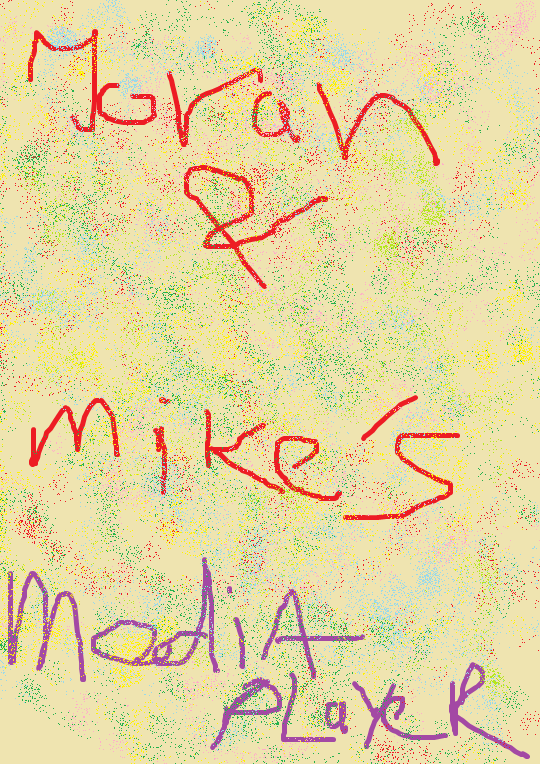 Moran
&
mike's
MediA
PLayeR